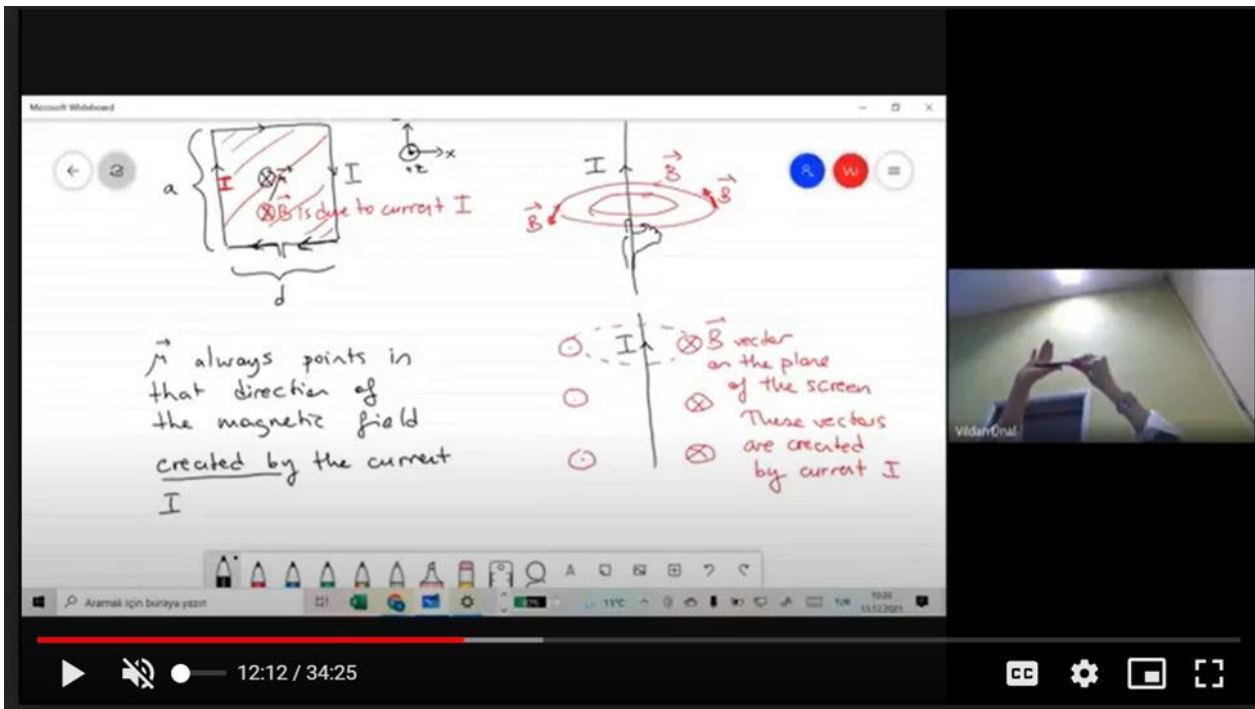 Microsoft Whiteboard
a
I
μ
I
x
+z
B is due to current I
d
I
B
B
B
μ always points in
that direction of
the magnetic field
created by the current
I
I
B vector
on the plane
of the screen
These vectors
are created
by current I
Vildan Ünal
Aramak için buraya yazın
11°C
10:20
13.12.2021
12:12 / 34:25
CC